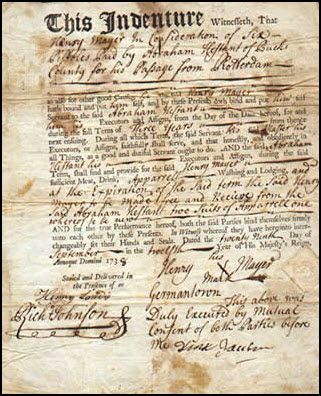 This Indenture Witnesseth, That
Henry Mayer In Consideration of Six
Pistoles Paid by Abraham Hestant of Bucks
County for his Passage from Rotterdam
as also for other good Causes he the said Henry Mayer
hath bound and put him self, and by these Presents doth bind and put him self
Servant to the said Abraham Hestant
his Executors and Assigns, from the Day of the Date hereof, for and
the full Term of Three Years from thence
next ensuing. During all which Term, the said Servant his said Master his
Executors, or Assigns, faithfully shall serve, and that honestly, and obediently in
all Things, as a good and dutiful Servant ought to do. AND the said Abraham
Hestant his Executors and Assigns, during the said
Term, shall find and provide for the said Henry Mayer
sufficient Meat, Drink, Apparrel Washing and Lodging, and
at the Expiration of the said term the said Henry
Mayer to be made free and Receive from the
said Abraham Hestant two Suits of Apparrell one
whereof to be new
AND for the true Performance hereof, both the said Parties bind themselves firmly
unto each other by these Presents. In Witness whereof they have hereunto inter-
changeably set their Hands and Seals. Dated the twenty Ninth Day of
September in the twelfth Year of His Majesty's Reign,
Annoque Domini 1738
his
Henry X Mayer
mark
Sealed and Delivered in
the Presence of us
Henry
Rich Johnson
Germantown
This above was
Duly Executed by Mutual
Consent of both Parties before
me